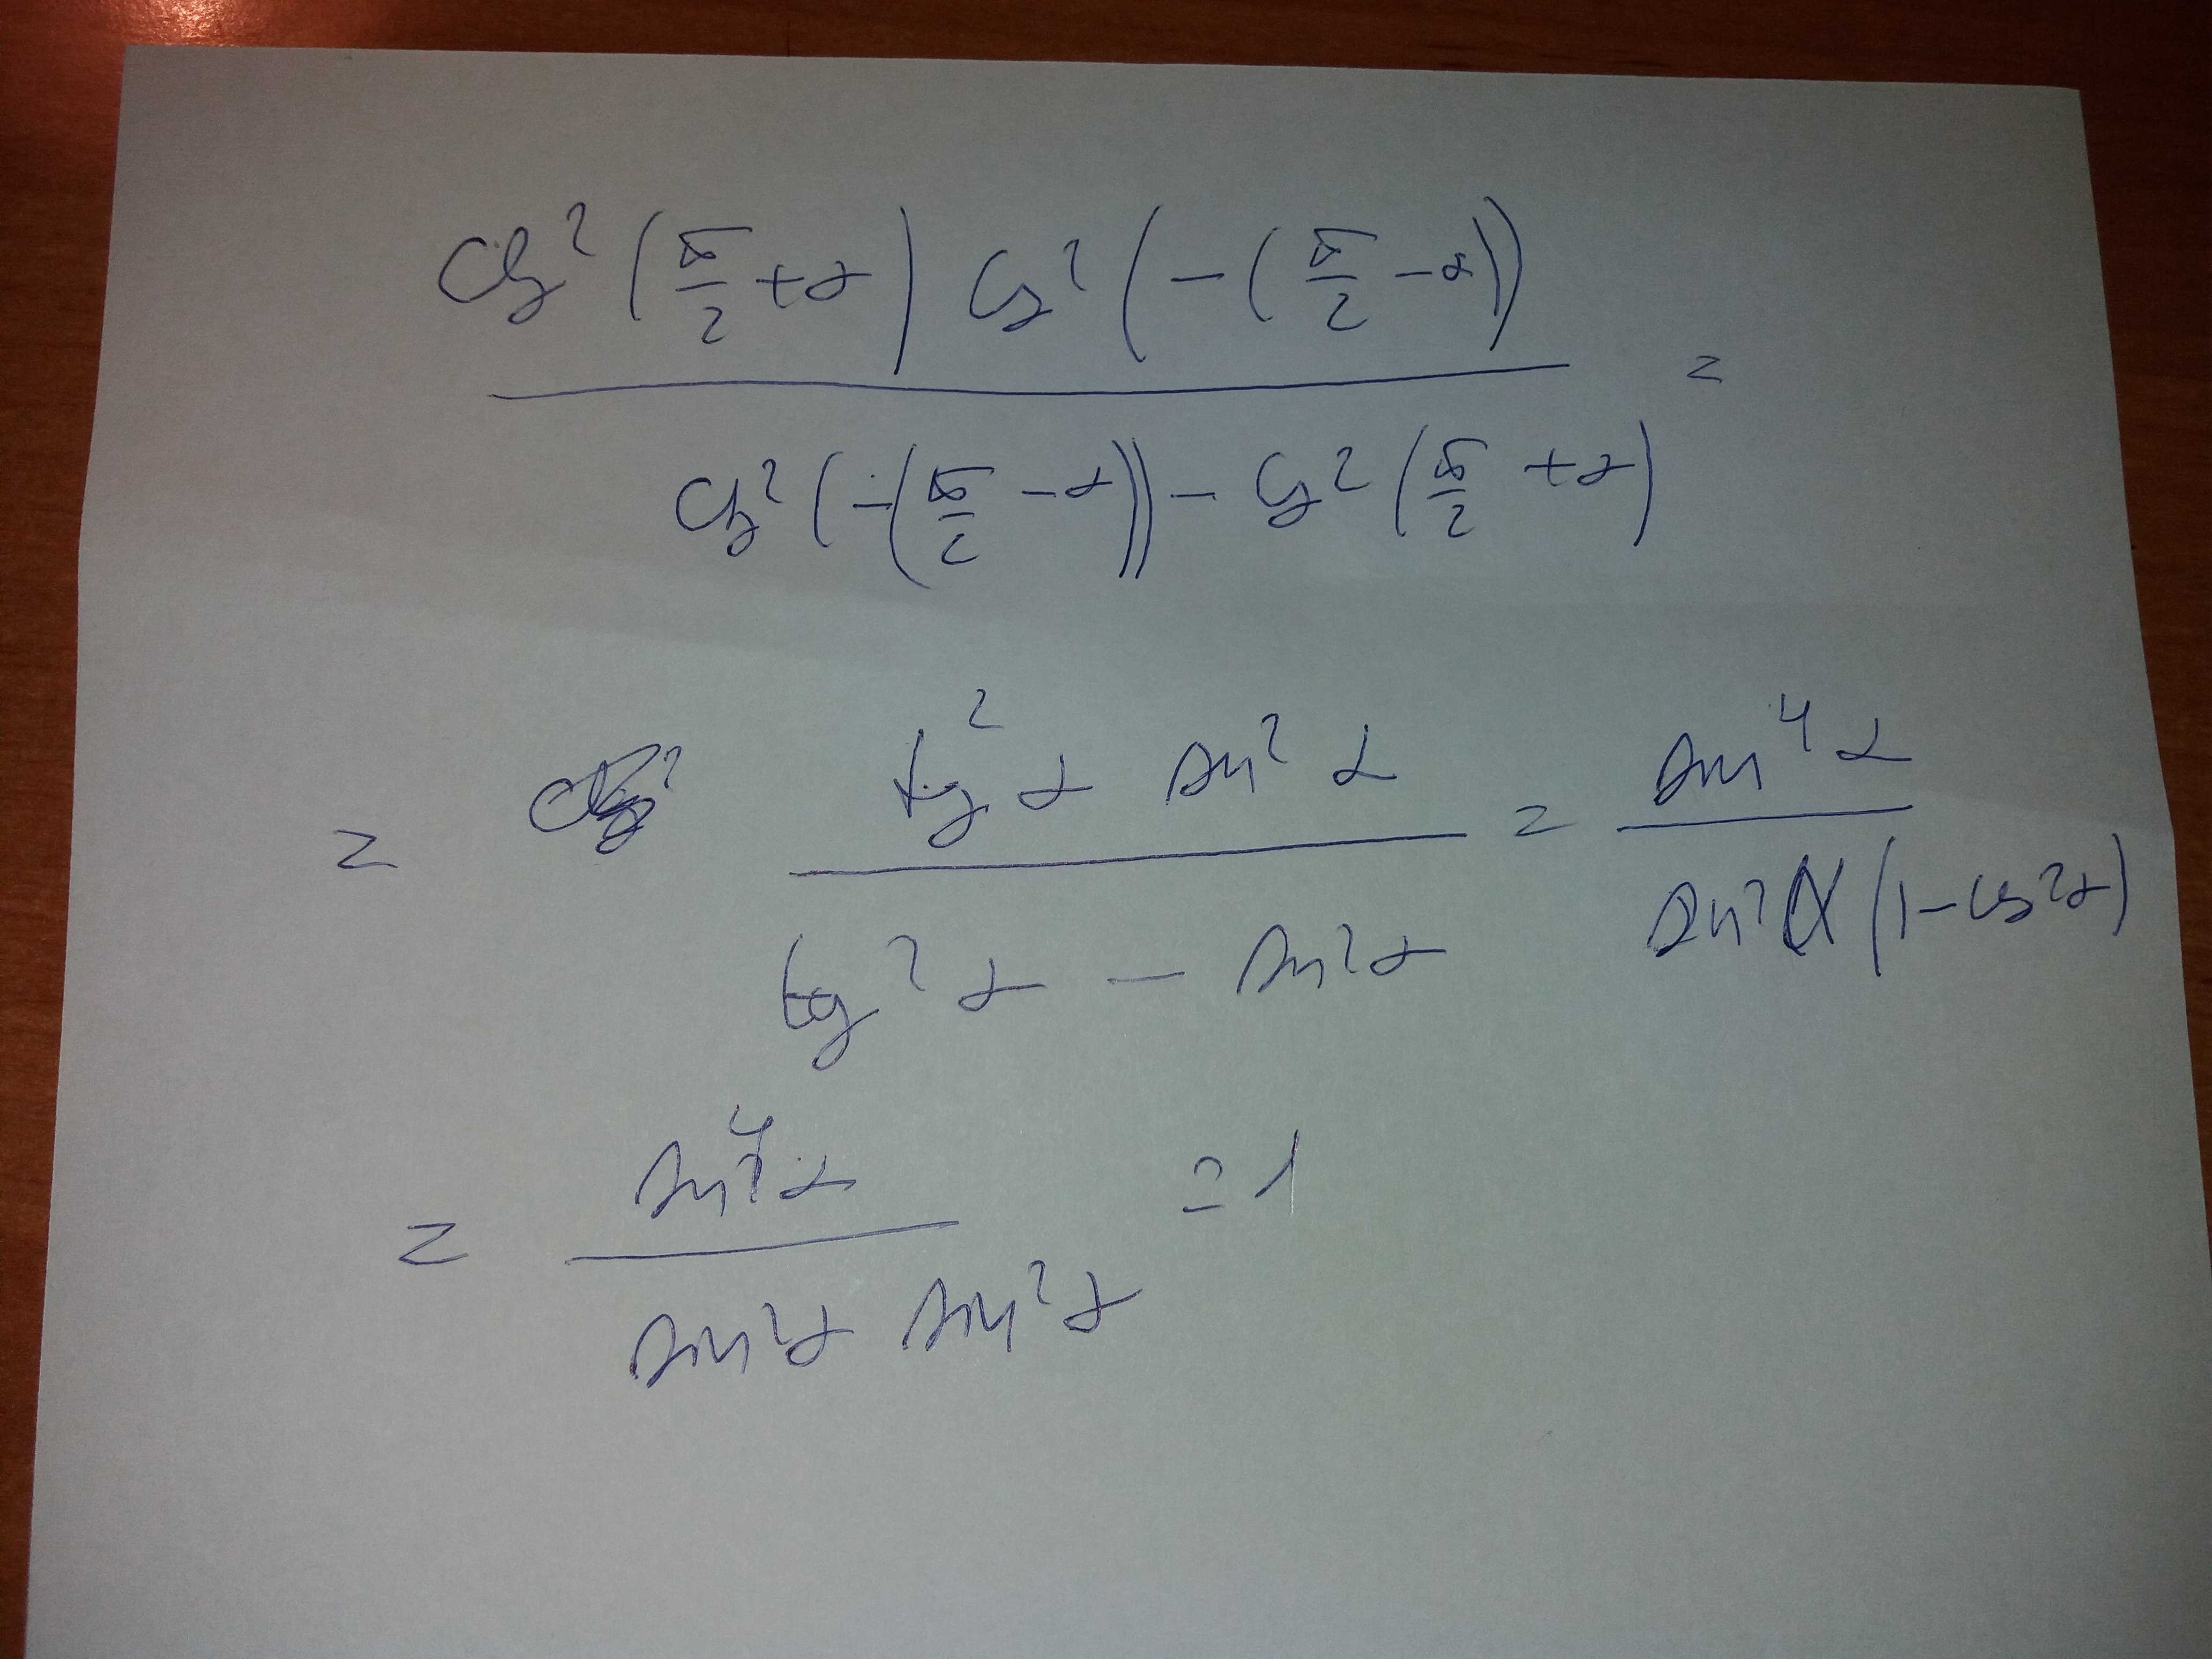 ctg² (π/2 + α) cos² (-(π/2 - α)) =
ctg² (-(π/2 - α)) - cos² (π/2 + α)
= tg² α sin² α = sin⁴ α
tg² α - sin² α sin² α (1 - cos² α)
= sin⁴ α = 1
sin² α sin² α